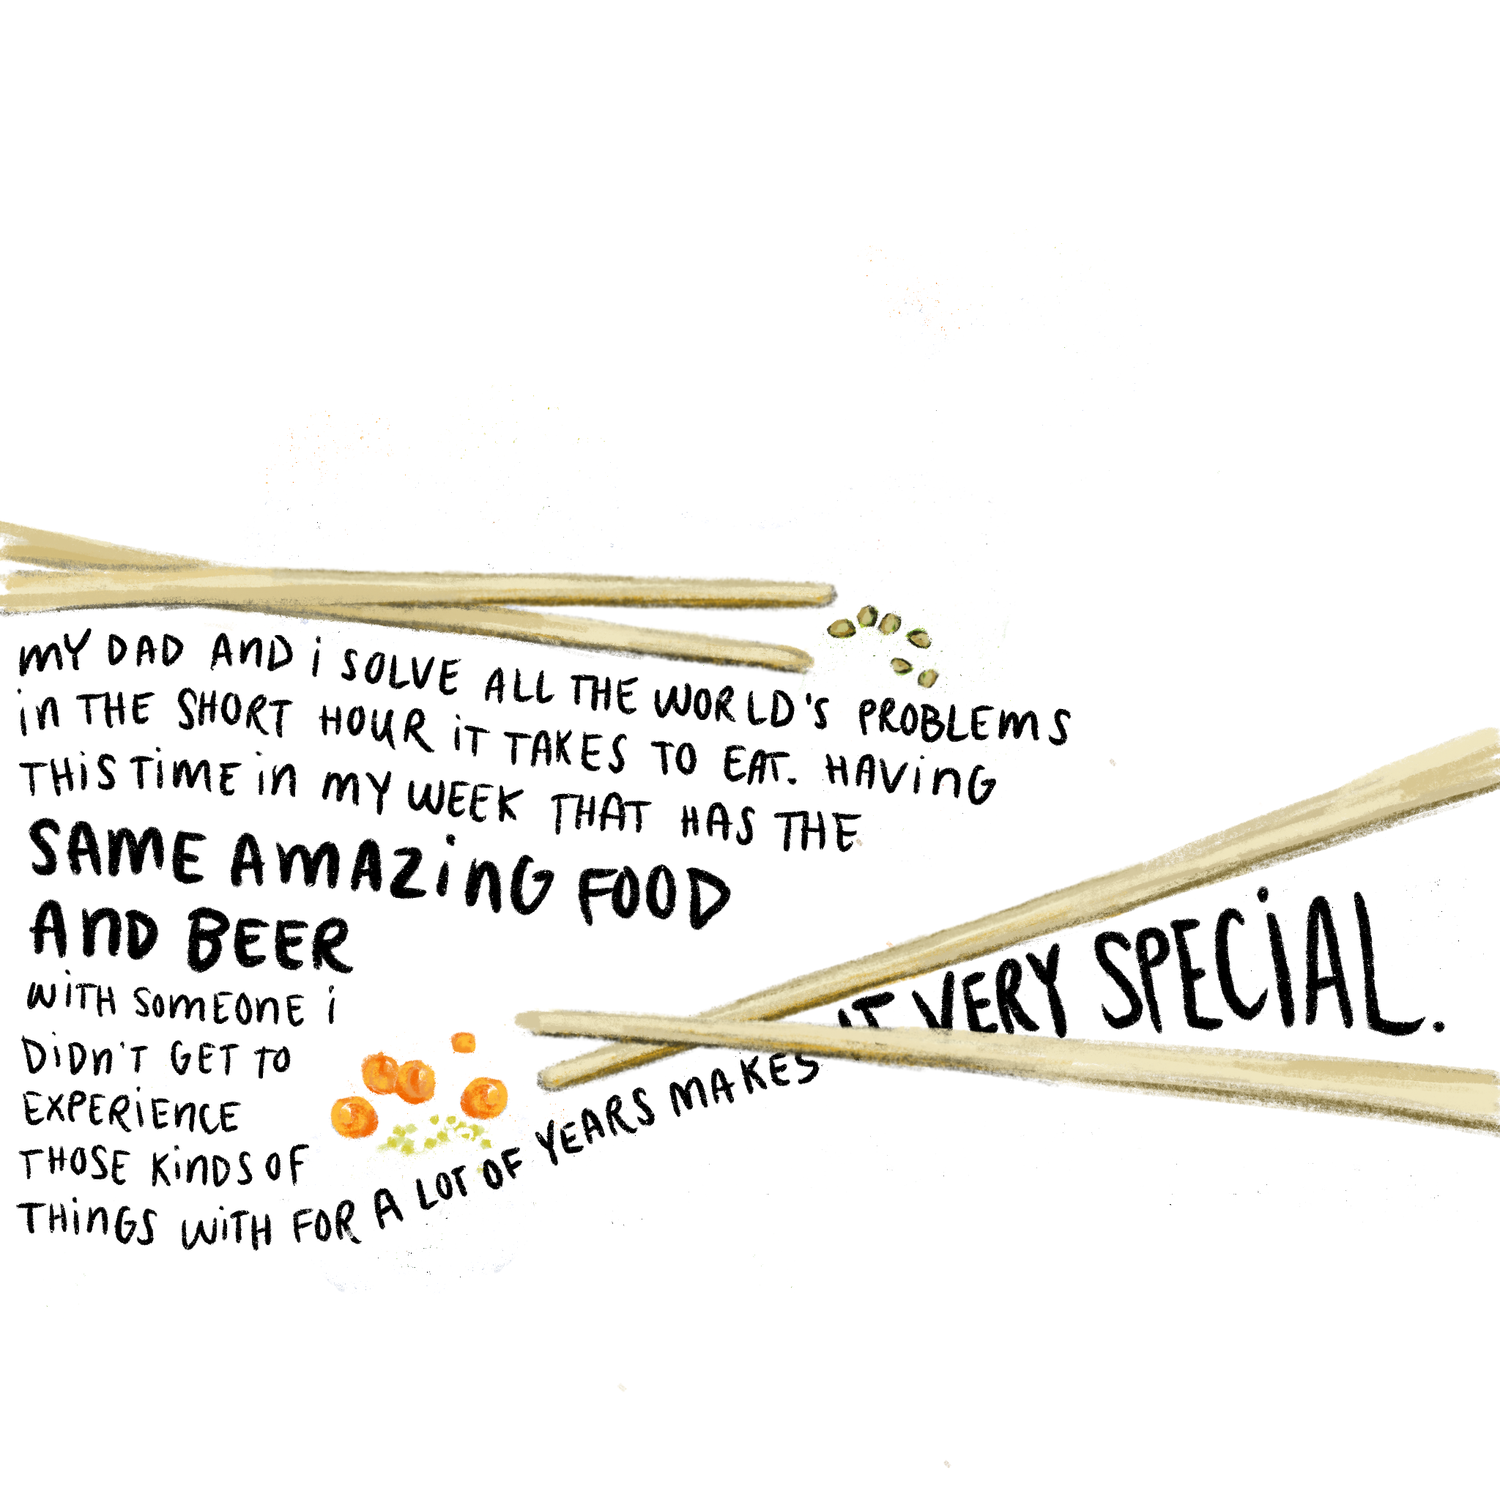 mY DAD AnD i SOLVE ALL THE WORLD'S PROBLEmS
in THE SHORT HOUR iT TAKES TO EAT. HAViNG
THiS TimE in mY WEEK THAT HAS THE
SAmE AmAZinG FOOD
AnD BEER
WiTH SOmEOnE i
DiDn'T GET TO
EXPERiEnCE
THOSE KinDS OF
THinGS WiTH FOR A LOT OF YEARS MAKES iT VERY SPECiAL.